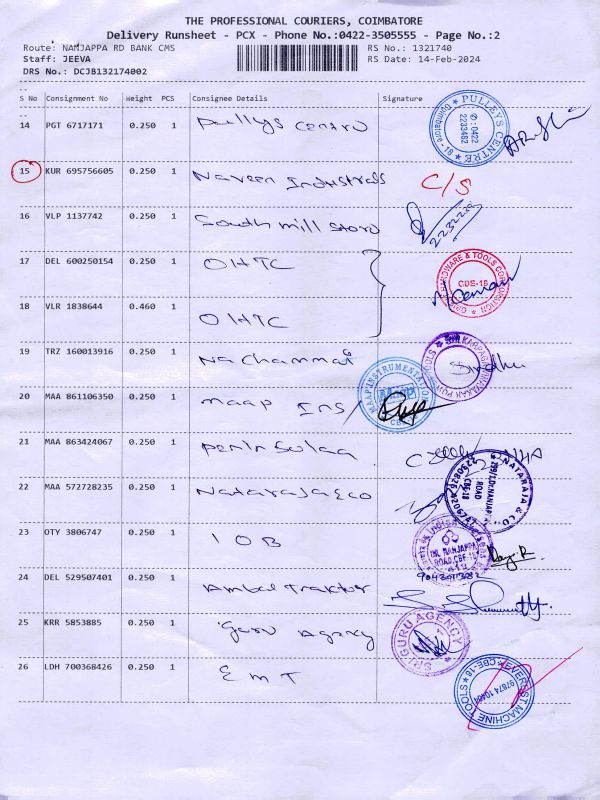 THE PROFESSIONAL COURIERS, COIMBATORE
Delivery Runsheet - PCX - Phone No.:0422-3505555 - Page No.:2
Route: NANJAPPA RD BANK CMS RS No.: 1321740
Staff: JEEVA RS Date: 14-Feb-2024
DRS No.: DCJB132174002
S No Consignment No Weight PCS Consignee Details Signature
14 PGT 6717171 0.250 1 Pullys Centre
PULLEYS CENTRE Coimbatore - 18 ✆ : 0422 2233462
15 KUR 695756605 0.250 1 Naveen Industrals C/S
16 VLP 1137742 0.250 1 South mill store
17 DEL 600250154 0.250 1 OHTC
HARDWARE & TOOLS CORPORATION CBE-18
18 VLR 1838644 0.460 1 OHTC
19 TRZ 160013916 0.250 1 Nachammai
Sindhu
20 MAA 861106350 0.250 1 maap Ins
MAAP INSTRUMENTATION
21 MAA 863424067 0.250 1
22 MAA 572728235 0.250 1 Nataraja & co
NATARAJA & CO. ROAD CBE-18
23 OTY 3806747 0.250 1 IOB
DR. NANJAPPA ROAD, CBE-18
24 DEL 529507401 0.250 1 Ambal Traktor
25 KRR 5853885 0.250 1 Guru Agency
SRI GURU AGENCY
26 LDH 700368426 0.250 1 EMT
EVEREST MACHINE TOOLS CBE-18